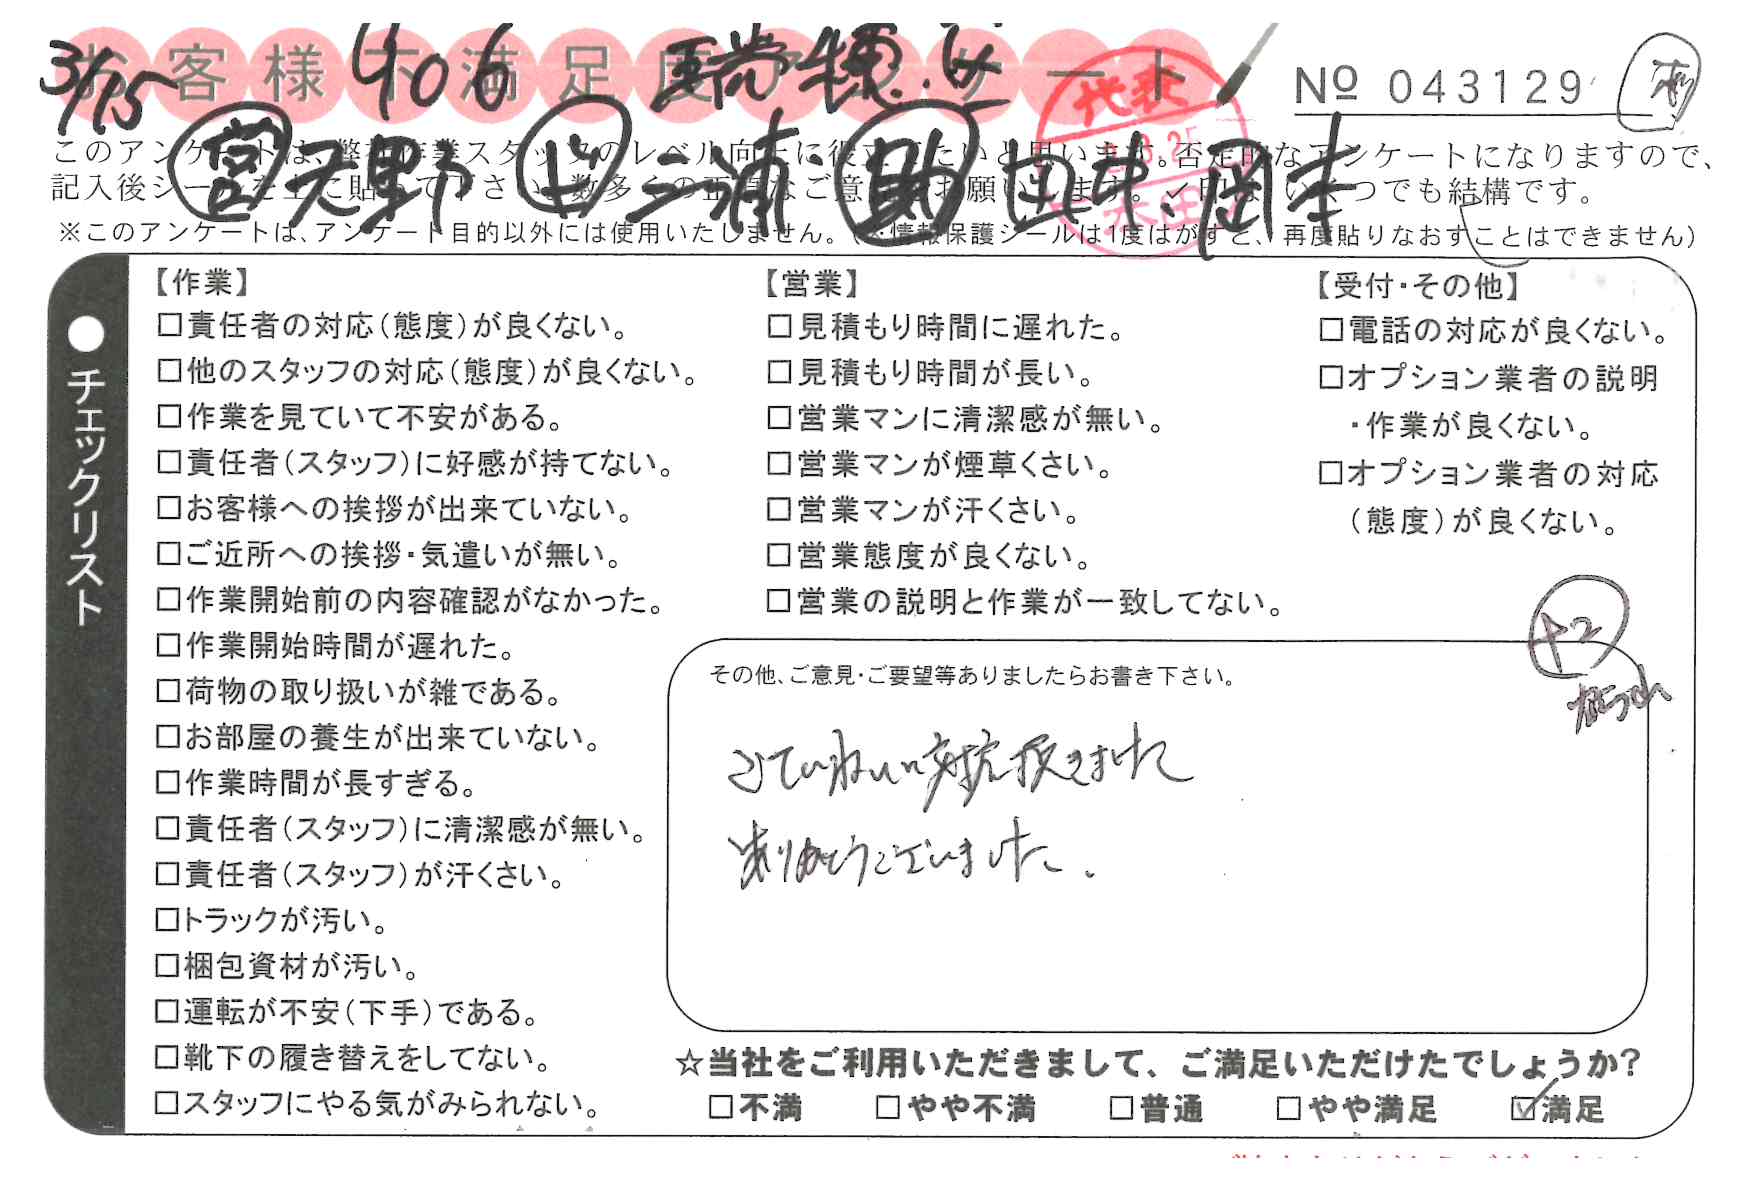 お客様不満足度アンケート
3/15 406 瑞穂.
№ 043129
営 天野 作 三浦 助 酒井、岡本
代表
本田
このアンケートは、弊社作業スタッフのレベル向上に役立てたいと思います。否定的なアンケートになりますので、
記入後シールを上に貼って下さい。数多くの正直なご意見をお願いします。✓印はいくつでも結構です。
※このアンケートは、アンケート目的以外には使用いたしません。(※情報保護シールは1度はがすと、再度貼りなおすことはできません)
●チェックリスト
【作業】
□責任者の対応(態度)が良くない。
□他のスタッフの対応(態度)が良くない。
□作業を見ていて不安がある。
□責任者(スタッフ)に好感が持てない。
□お客様への挨拶が出来ていない。
□ご近所への挨拶・気遣いが無い。
□作業開始前の内容確認がなかった。
□作業開始時間が遅れた。
□荷物の取り扱いが雑である。
□お部屋の養生が出来ていない。
□作業時間が長すぎる。
□責任者(スタッフ)に清潔感が無い。
□責任者(スタッフ)が汗くさい。
□トラックが汚い。
□梱包資材が汚い。
□運転が不安(下手)である。
□靴下の履き替えをしてない。
□スタッフにやる気がみられない。
【営業】
□見積もり時間に遅れた。
□見積もり時間が長い。
□営業マンに清潔感が無い。
□営業マンが煙草くさい。
□営業マンが汗くさい。
□営業態度が良くない。
□営業の説明と作業が一致してない。
【受付・その他】
□電話の対応が良くない。
□オプション業者の説明
・作業が良くない。
□オプション業者の対応
(態度)が良くない。
+2
その他、ご意見・ご要望等ありましたらお書き下さい。
とてもていねいな対応頂きました
ありがとうございました.
☆当社をご利用いただきまして、ご満足いただけたでしょうか?
□不満 □やや不満 □普通 □やや満足 ☑満足